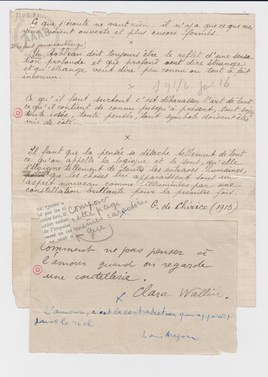 Ce que j'écoute ne vaut rien, il n'y a que ce que me
yeux ouverts et plus encore fermés.
Un tableau doit toujours être le reflet d'une sensa-
tion profonde et que profond veut dire étrange
et qu'étrange veut dire peu commun ou tout à fait
inconnu.
Ce qu'il faut surtout c'est débarrasser l'art de tout
ce qu'il contient de connu jusqu'à présent, tout
idée, toute pensée, tout symbole doivent être
mis de côté.
Il faut que la pensée se détache tellement de tout
ce qu'on appelle la logique et le sens, qu'elle
s'éloigne tellement de toutes les entraves humaines,
les choses lui apparaissent sous un
aspect nouveau comme illuminées par une
constellation brillante pour la première fois.
G. de Chirico (1913)
composer
cette page
même
caractères
que
Comment ne pas penser à
l'amour quand on regarde
une coutellerie.
Clara Wallin
L'amour, c'est la contradiction qui apparaît
dans le réel.
Louis Aragon